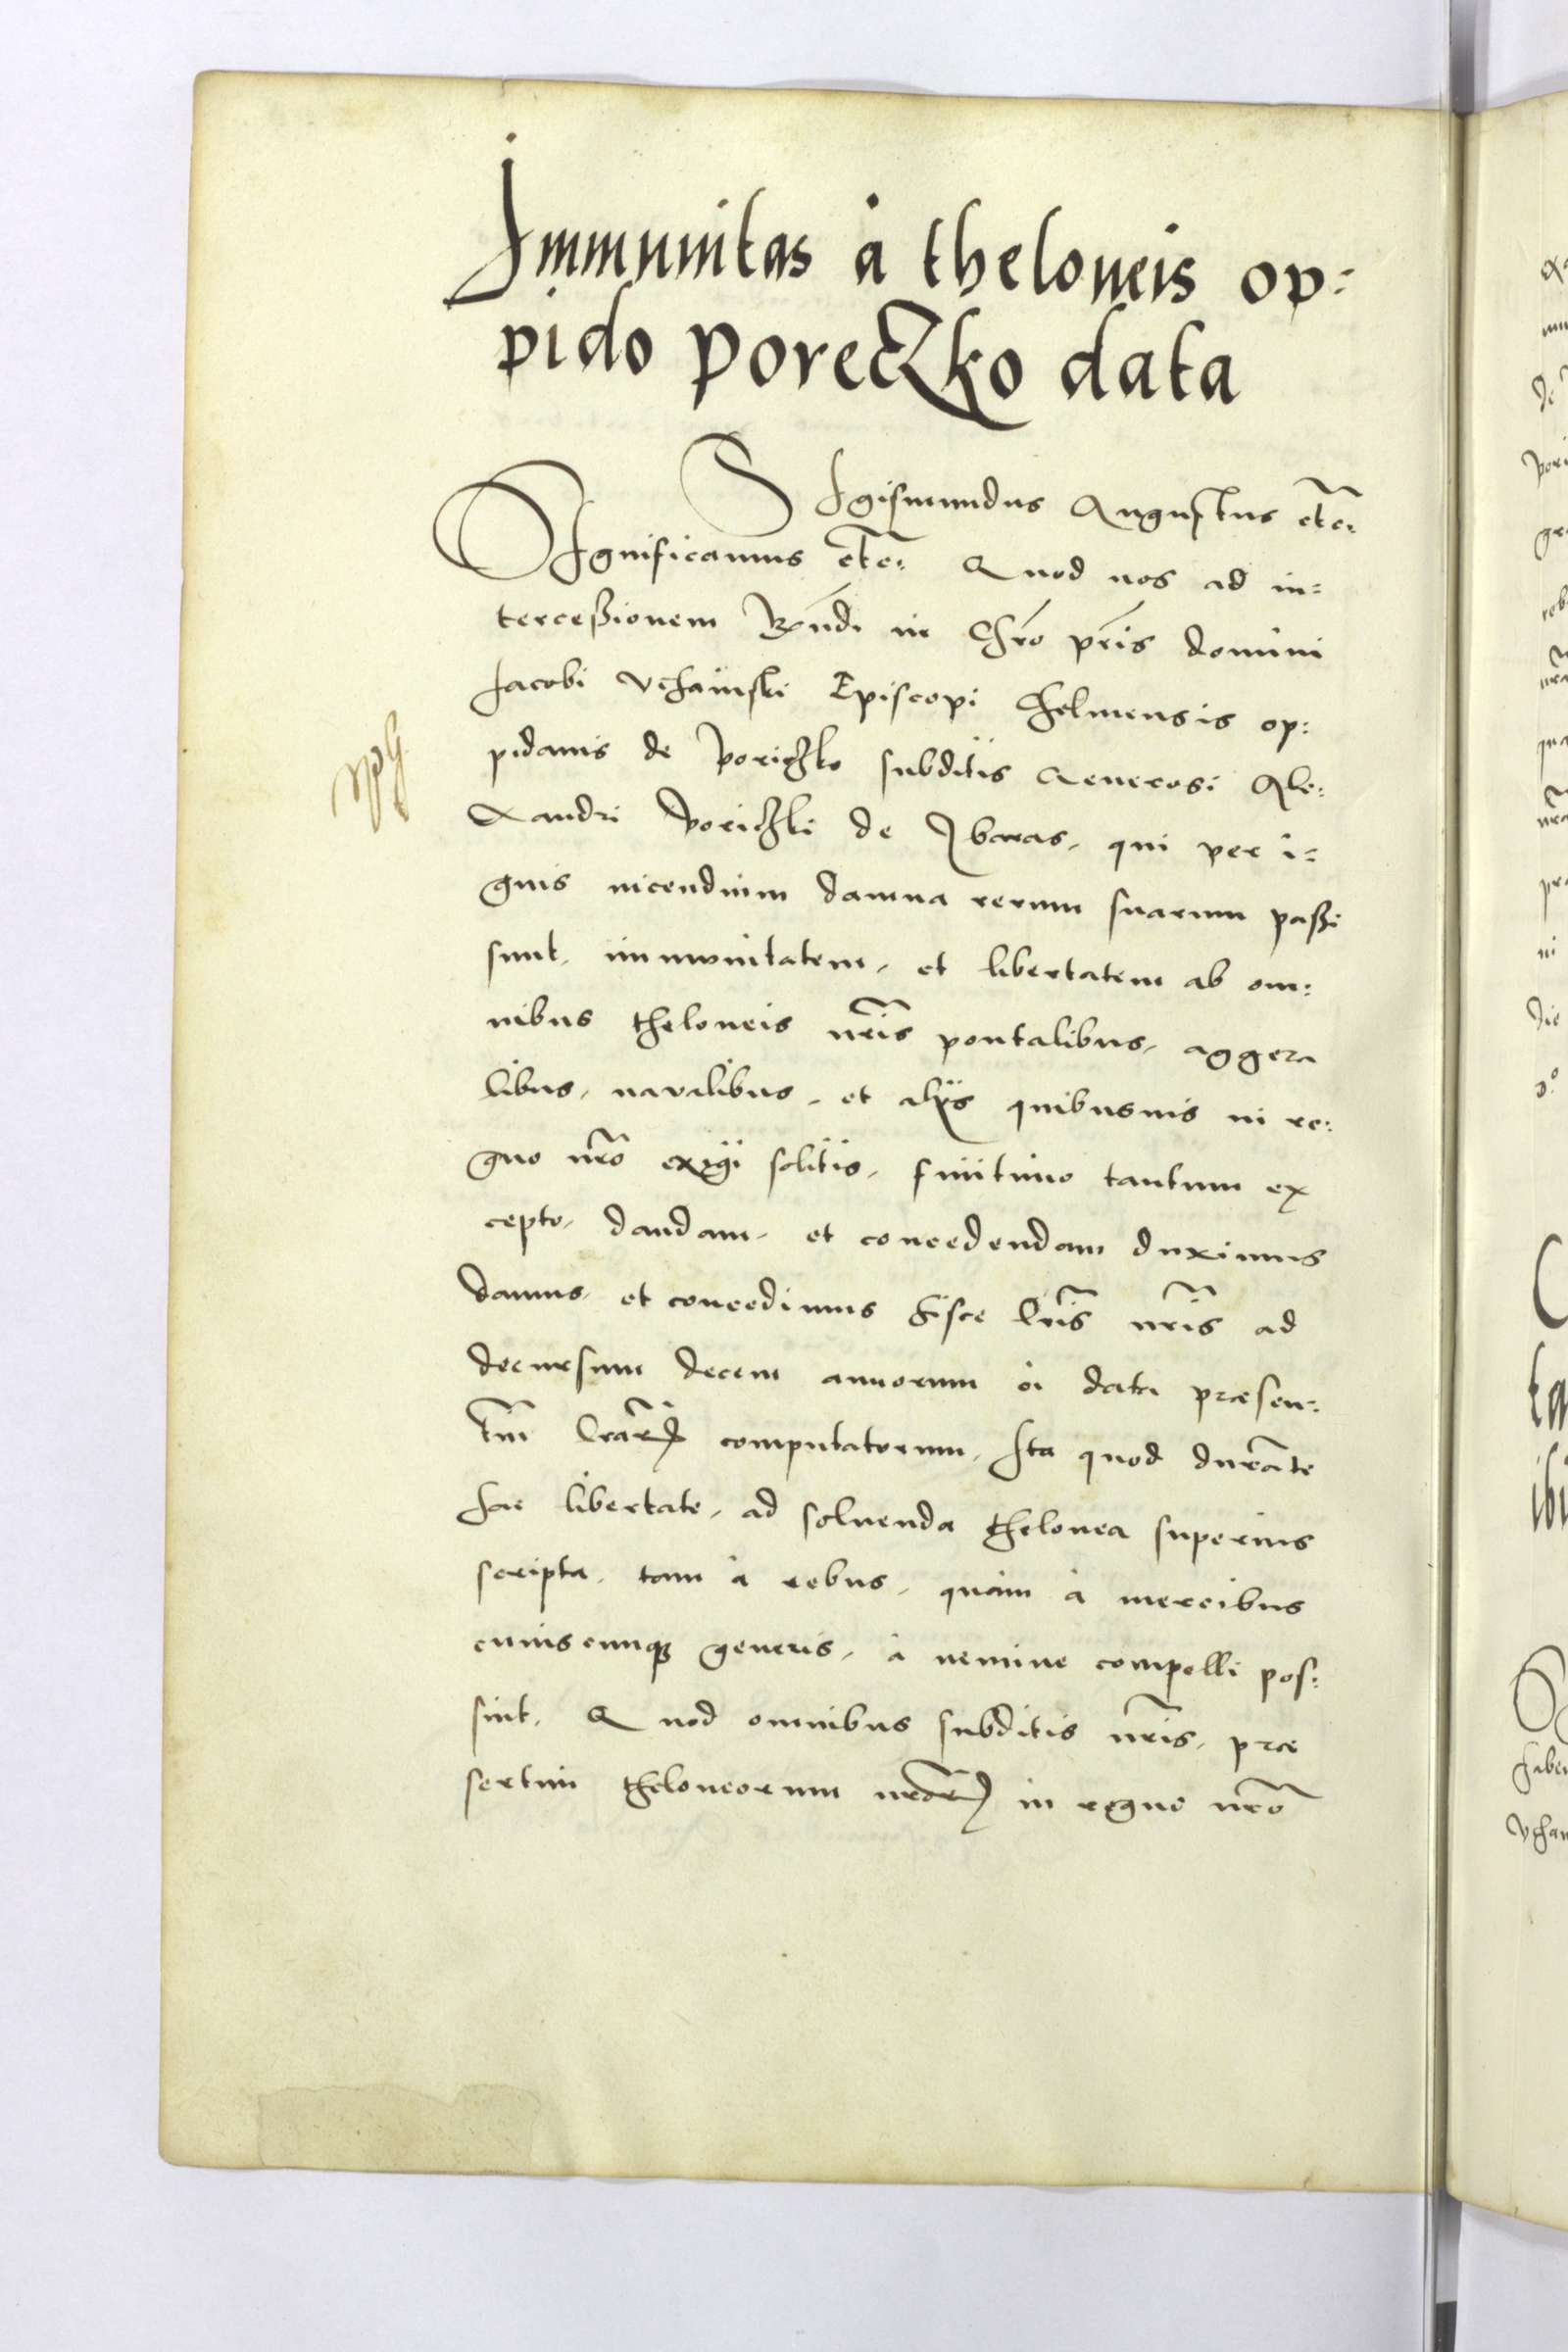 Immunitas à theloneis op=
pido Poreczko data
SIgismundus Augustus etc:
SIgnificamus etc: Quod nos ad in=
terceßionem Rndi in Chro pris domini
Jacobi Vchainski Episcopi Chelmensis op:
pidanis de Poriczko subditis Generosi Ale:
xandri Poriczki de Zbaras, qui per i=
gnis incendium damna rerum suarum paßi
sunt, immunitatem, et libertatem ab om:
nibus theloneis nris pontalibus, aggera
libus, navalibus, et alijs quibusuis in re:
gno nro exigi solitis, finitimo tantum ex
cepto, dandam, et concedendam duximus
damus, et concedimus hisce lris nris ad
decursum decem annorum à data præsen:
tm lrarum computatorum, Ita quod durante
hac libertate, ad soluenda thelonea superius
scripta, tam à rebus, quàm à mercibus
cuiuscunque generis, à nemine compelli pos:
sint. Quod omnibus subditis nris, præ
sertim theloneorum nrorum in regno nro